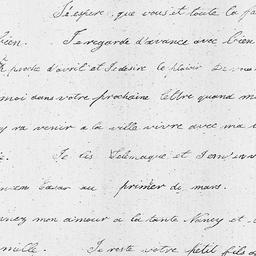 J'éspere que vous et toute la fa
bien. Je regarde d'avance avec bien
proche d'avril et Je desire le plaisir De vous
moi dans votre prochaine lettre quand m
y va venir a la ville vivre avec ma
Je lis Telemaque et J'em
au primier de mars.
nez mon aimour a la tante Nancy et
mille. Je reste votre petit fils